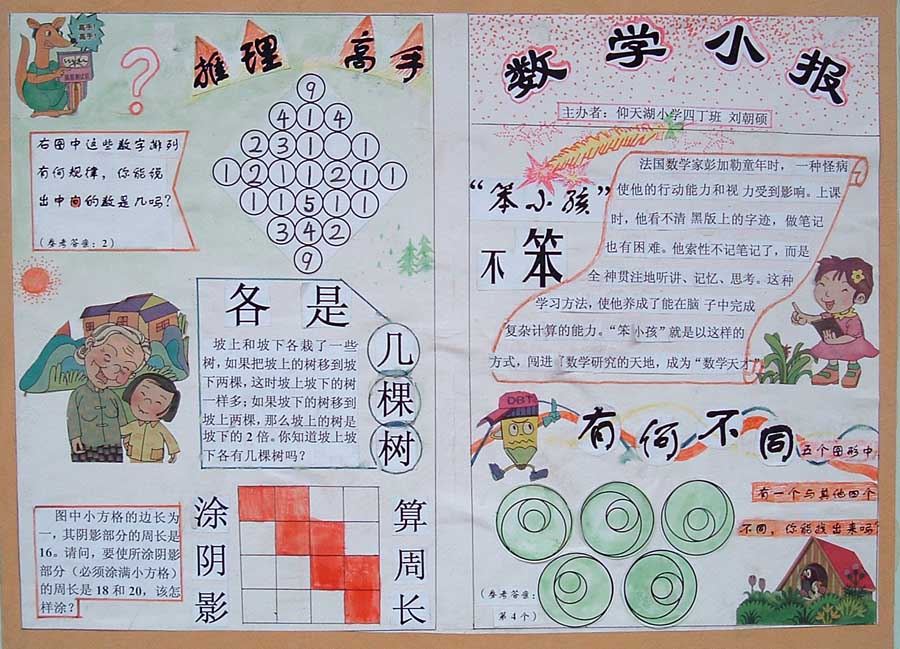 高手!
高手!
推理 高手
右图中这些数字排列
有何规律，你能说
出中间的数是几吗?
(参考答案: 2)
9
4 1 4
2 3 1 1
1 2 1 1 2 1 1
2 1 1 5 1 1
3 4 2
9
各是
几棵树
坡上和坡下各栽了一些
树,如果把坡上的树移到坡
下两棵，这时坡上坡下的树
一样多；如果坡下的树移到
坡上两棵，那么坡上的树是
坡下的 2 倍。你知道坡上坡
下各有几棵树吗？
图中小方格的边长为
一，其阴影部分的周长是
16。请问，要使所涂阴影
部分（必须涂满小方格）
的周长是 18 和 20，该怎
样涂？
涂阴影
算周长
数学小报
主办者：仰天湖小学四丁班 刘朝硕
“笨小孩”
不笨
法国数学家彭加勒童年时，一种怪病
使他的行动能力和视 力受到影响。上课
时，他看不清 黑版上的字迹，做笔记
也有困 难。他索性不记笔记了，而是
全 神贯注地听讲、记忆、思考。这种
学习方法，使他养成了能在脑 子中完成
复杂计算的能力。“笨 小孩”就是以这样的
方式，闯进了数学研究的天地，成为“数学天才”
DBT
有何不同
五个图形中,
有一个与其他四个
不同，你能找出来吗?
(参考答案:
第4个)